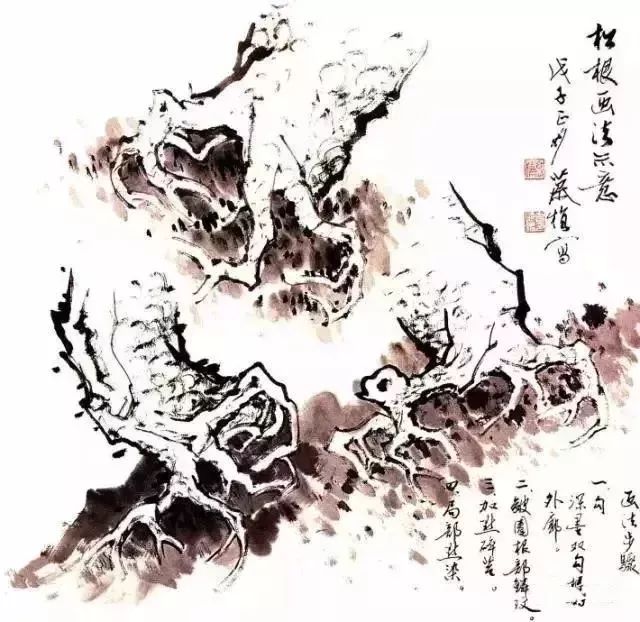 松根画法示意
戊子正
写
画法步骤
一、勾
深墨双勾
外廓。
二、皴圈根部鳞纹。
三、加点碎苔。
四、局部点染。